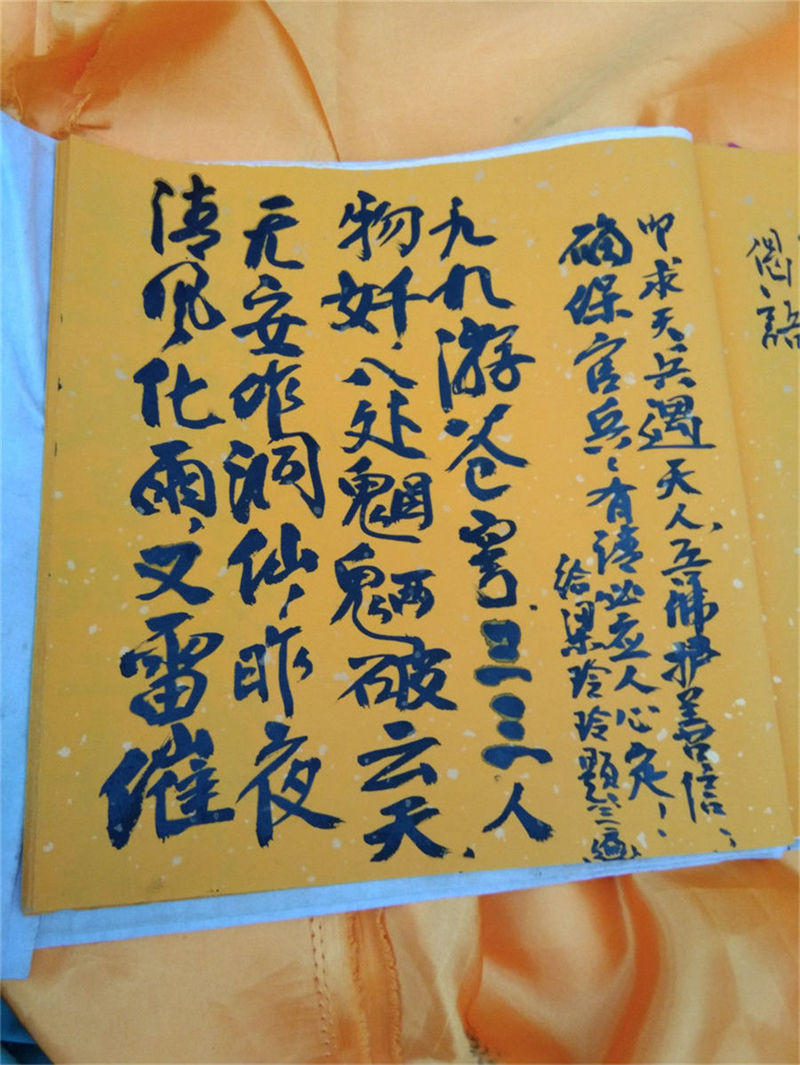 偈语
叩求天兵遇天人、五佛护善信、
确保官兵、有请必应人心定！
给梁玲玲题
九九游苍穹、三三人
物奸、八处魍魉破云天、
无安咋洞仙、昨夜
清风化雨、又雷催